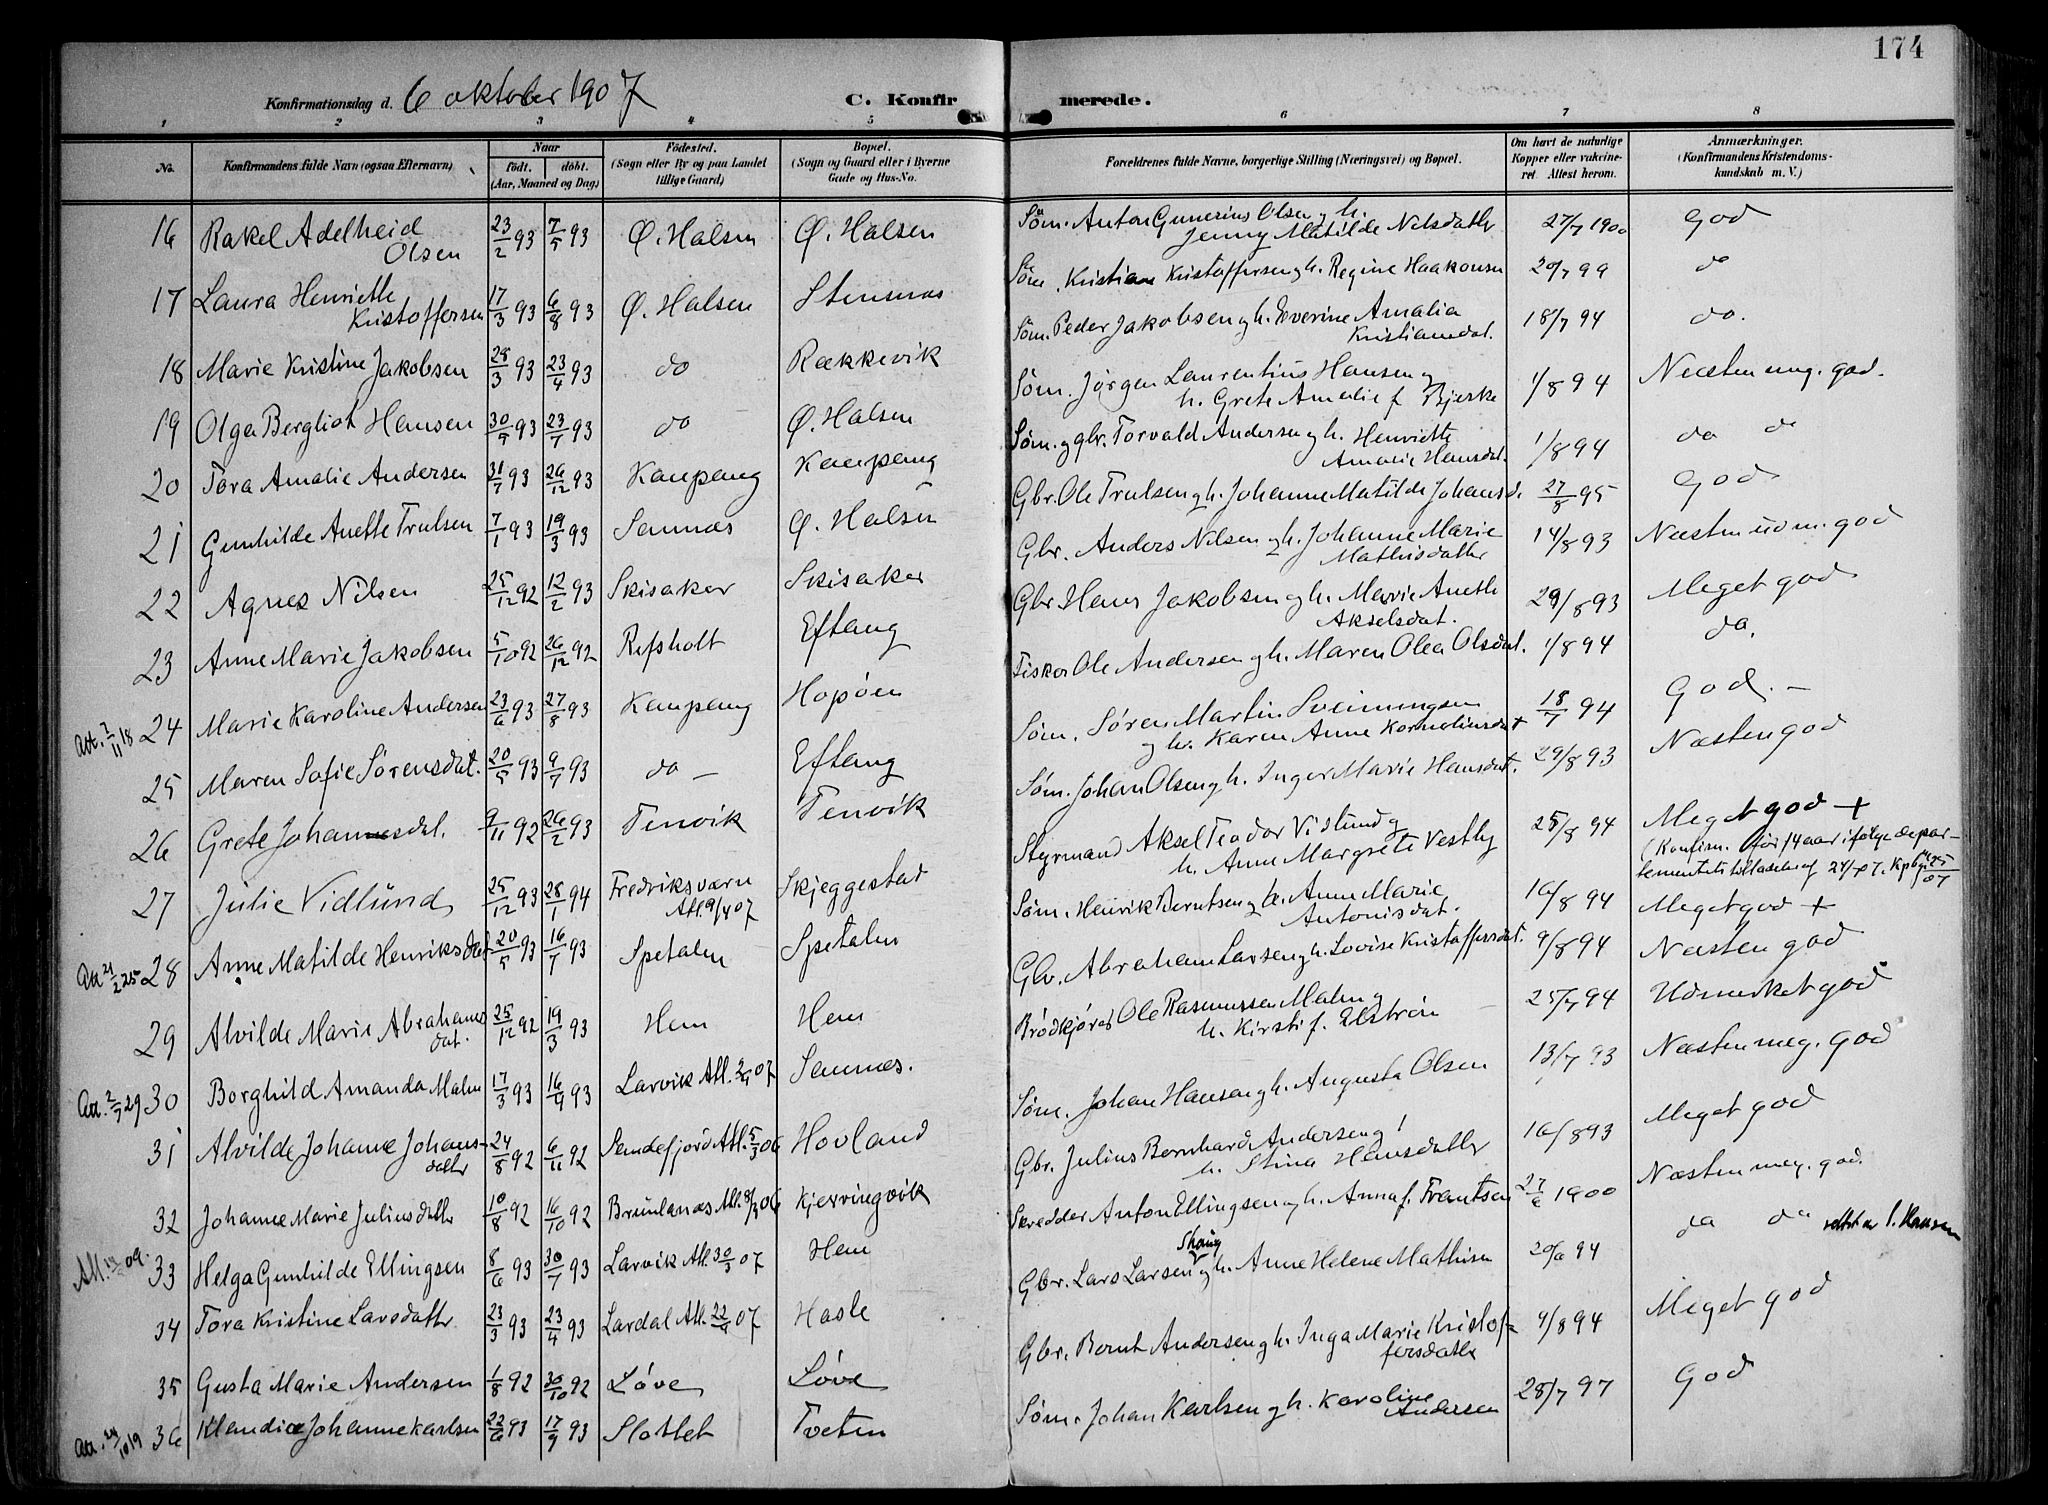 174
Konfirmationsdag d. 6 oktober 1907
C. Konfirmerede.
1 2 3 4 5 6 7 8
No.
Konfirmandens fulde Navn (ogsaa Efternavn)
Naar
födt. döbt.
(Aar, Maaned og Dag)
Födested.
(Sogn eller By og paa Landet
tillige Gaard)
Bopæl.
(Sogn og Gaard eller i Byerne
Gade og Hus-No.
Forældrenes fulde Navne, borgerlige Stilling (Næringsvei) og Bopæl.
Om havt de naturlige
Kopper eller vakcine-
ret. Attest herom.
Anmærkninger.
(Konfirmandens Kristendoms-
kundskab m. V.)
16 Rakel Adelheid Olsen 23/2 93 7/5 93 Ø. Halsen Ø. Halsen Søm. Anton Gunerius Olsen og h. Jenny Matilde Nilsdattr 27/7 1900 God
17 Laura Henriette Kristoffersen 17/3 93 6/8 93 Ø. Halsen Stensnæs Søm. Kristian Kristoffersen og h. Regine Haakonsen 20/7 99 do
18 Marie Kristine Jakobsen 28/3 93 23/4 93 do Rækkevik Søm. Peder Jakobsen og h. Severine Amalia Kristiansdat. 18/7 94 do.
19 Olga Bergliot Hansen 93 93 do Ø. Halsen Søm. Jørgen Laurentius Hansen og h. Grete Amalie f. Bjerke 1/8 94 Næsten meg. god.
20 Tora Amalie Andersen 93 26/12 93 Kaupang Kaupang Søm. og gbr. Torvald Andersen og h. Henriette Amalie Hansdat. 1/8 94 do do
21 Gunhilde Anette Trulsen 7/1 93 19/3 93 Sannæs Ø. Halsen Gbr. Ole Trulsen og h. Johanne Matilde Johansd. 27/8 95 God
22 Agnes Nilsen 25/12 92 12/2 93 Skisaker Skisaker Gbr. Anders Nilsen og h. Johanne Marie Mathisdattr 14/8 93 Næsten udm. god
23 Anne Marie Jakobsen 5/10 92 26/12 92 Refsholt Eftang Gbr. Hans Jakobsen og h. Marie Anette Akselsdat. 29/8 93 Meget god
Att. 7/11 18 24 Marie Karoline Andersen 23/6 93 27/8 93 Kaupang Hopøen Fisker Ole Andersen og h. Maren Olea Olsdat. 1/8 94 do.
25 Maren Sofie Sørensdat. 20/5 93 9/7 93 do — Eftang Søm. Søren Martin Sveinungsen og h. Karen Anne Korneliusdat 18/7 94 God. —
26 Grete Johannesdat. 9/11 92 26/2 93 Tenvik Tenvik Søm. Johan Olsen og h. Inger Marie Hansdat. 29/8 93 Næsten god
27 Julie Vidlund 25/12 93 28/1 94 Fredriksværn Att. 9/4 07 Skjeggestad Styrmand Aksel Teodor Vidlund og h. Anne Margrete Vestby 25/8 94 Meget god +
(Konfirm. før 14 aar ifølge depar-
tementets tilladelse af
28 Anne Matilde Henriksdat 20/5 93 16/7 93 Spetalen Spetalen Søm. Henrik Berntsen og h. Anne Marie Antonisdat. 16/8 94 Meget god +
29 Alvilde Marie Abrahams dat. 25/12 92 19/3 93 Hem Hem Gbr. Abraham Larsen og h. Lovise Kristoffersdat. 9/8 94 Næsten god
Att. 2/7 29 30 Borghild Amanda Malm 17/3 93 16/9 93 Larvik Att. 07 Sannæs. Brødkjører Ole Rasmussen Malm og h. Kirsti f. Elstrøm 25/7 94 Udmerket god
31 Alvilde Johanne Johans- dattr 24/8 92 6/11 92 Sandefjord Att. 5/3 06 Hovland Søm. Johan Hansen og h. Augusta Olsen 13/7 93 Næsten meg. god
32 Johanne Marie Juliusdattr 10/8 92 16/10 92 Brunlanæs Att. 8/3 06 Kjerringvik Gbr. Julius Bernhard Andersen og h. Stina Hansdattr 16/8 93 Meget god
33 Helga Gunhilde Ellingsen 8/6 93 30/7 93 Larvik Att. 30/3 07 Hem Skredder Anton Ellingsen og h. Anna f. Frantsen 27/6 1900 Næsten meg. god.
34 Tora Kristine Larsdattr 23/3 93 23/4 93 Lardal Att. 07 Hasle Gbr. Lars Larsen Skaug og h. Anne Helene Mathisen 94 do do
35 Gusta Marie Andersen 1/8 92 30/10 92 Løve Løve Gbr. Bernt Andersen og h. Inga Marie Kristof- fersdattr 9/8 94 Meget god
36 Klaudia Johanne Karlsen 22/6 93 17/9 93 Slottet Tveten Søm. Johan Karlsen og h. Karoline Andersen 28/7 97 God